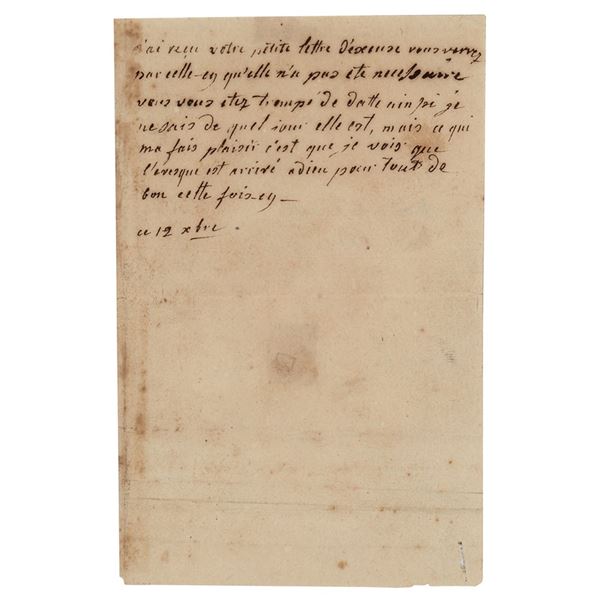 j'ai reçu votre petite lettre d'éxcuse vous verrez
par celle-cy qu'elle n'a pas été necessaire
vous vous etez trompé de datte ainsi je
ne sais de quel jour elle est, mais ce qui
ma fais plaisir c'est que je vois que
l'évesque est arrivé adieu pour tout de
bon cette fois-cy —
ce 12 xbre.